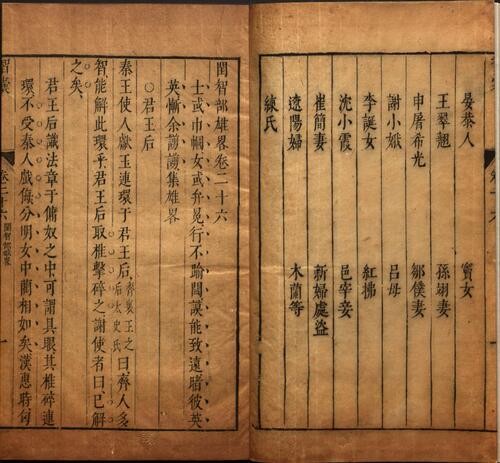 晏恭人 竇女
王翠翹 孫翊妻
申屠希光 鄒僕妻
謝小娥 呂母
李誕女 紅拂
沈小霞 邑宰妾
崔簡妻 新婦處盜
遼陽婦 木蘭等
練氏
閨智部雄畧卷二十六
士或巾幗女或弁冕行不踰閾謨能致遠睹彼英
英慚余諓諓集雄畧
○君王后
秦王使人獻玉連環于君王后齊襄王之后太史氏曰齊人多
智能解此環乎君王后取椎擊碎之謝使者曰已解
之矣
君王后識法章于傭奴之中可謂具眼其椎碎連
環不受秦人戲侮分明女中藺相如矣漢惠時匈
智囊 卷二十六 閨智部雄畧